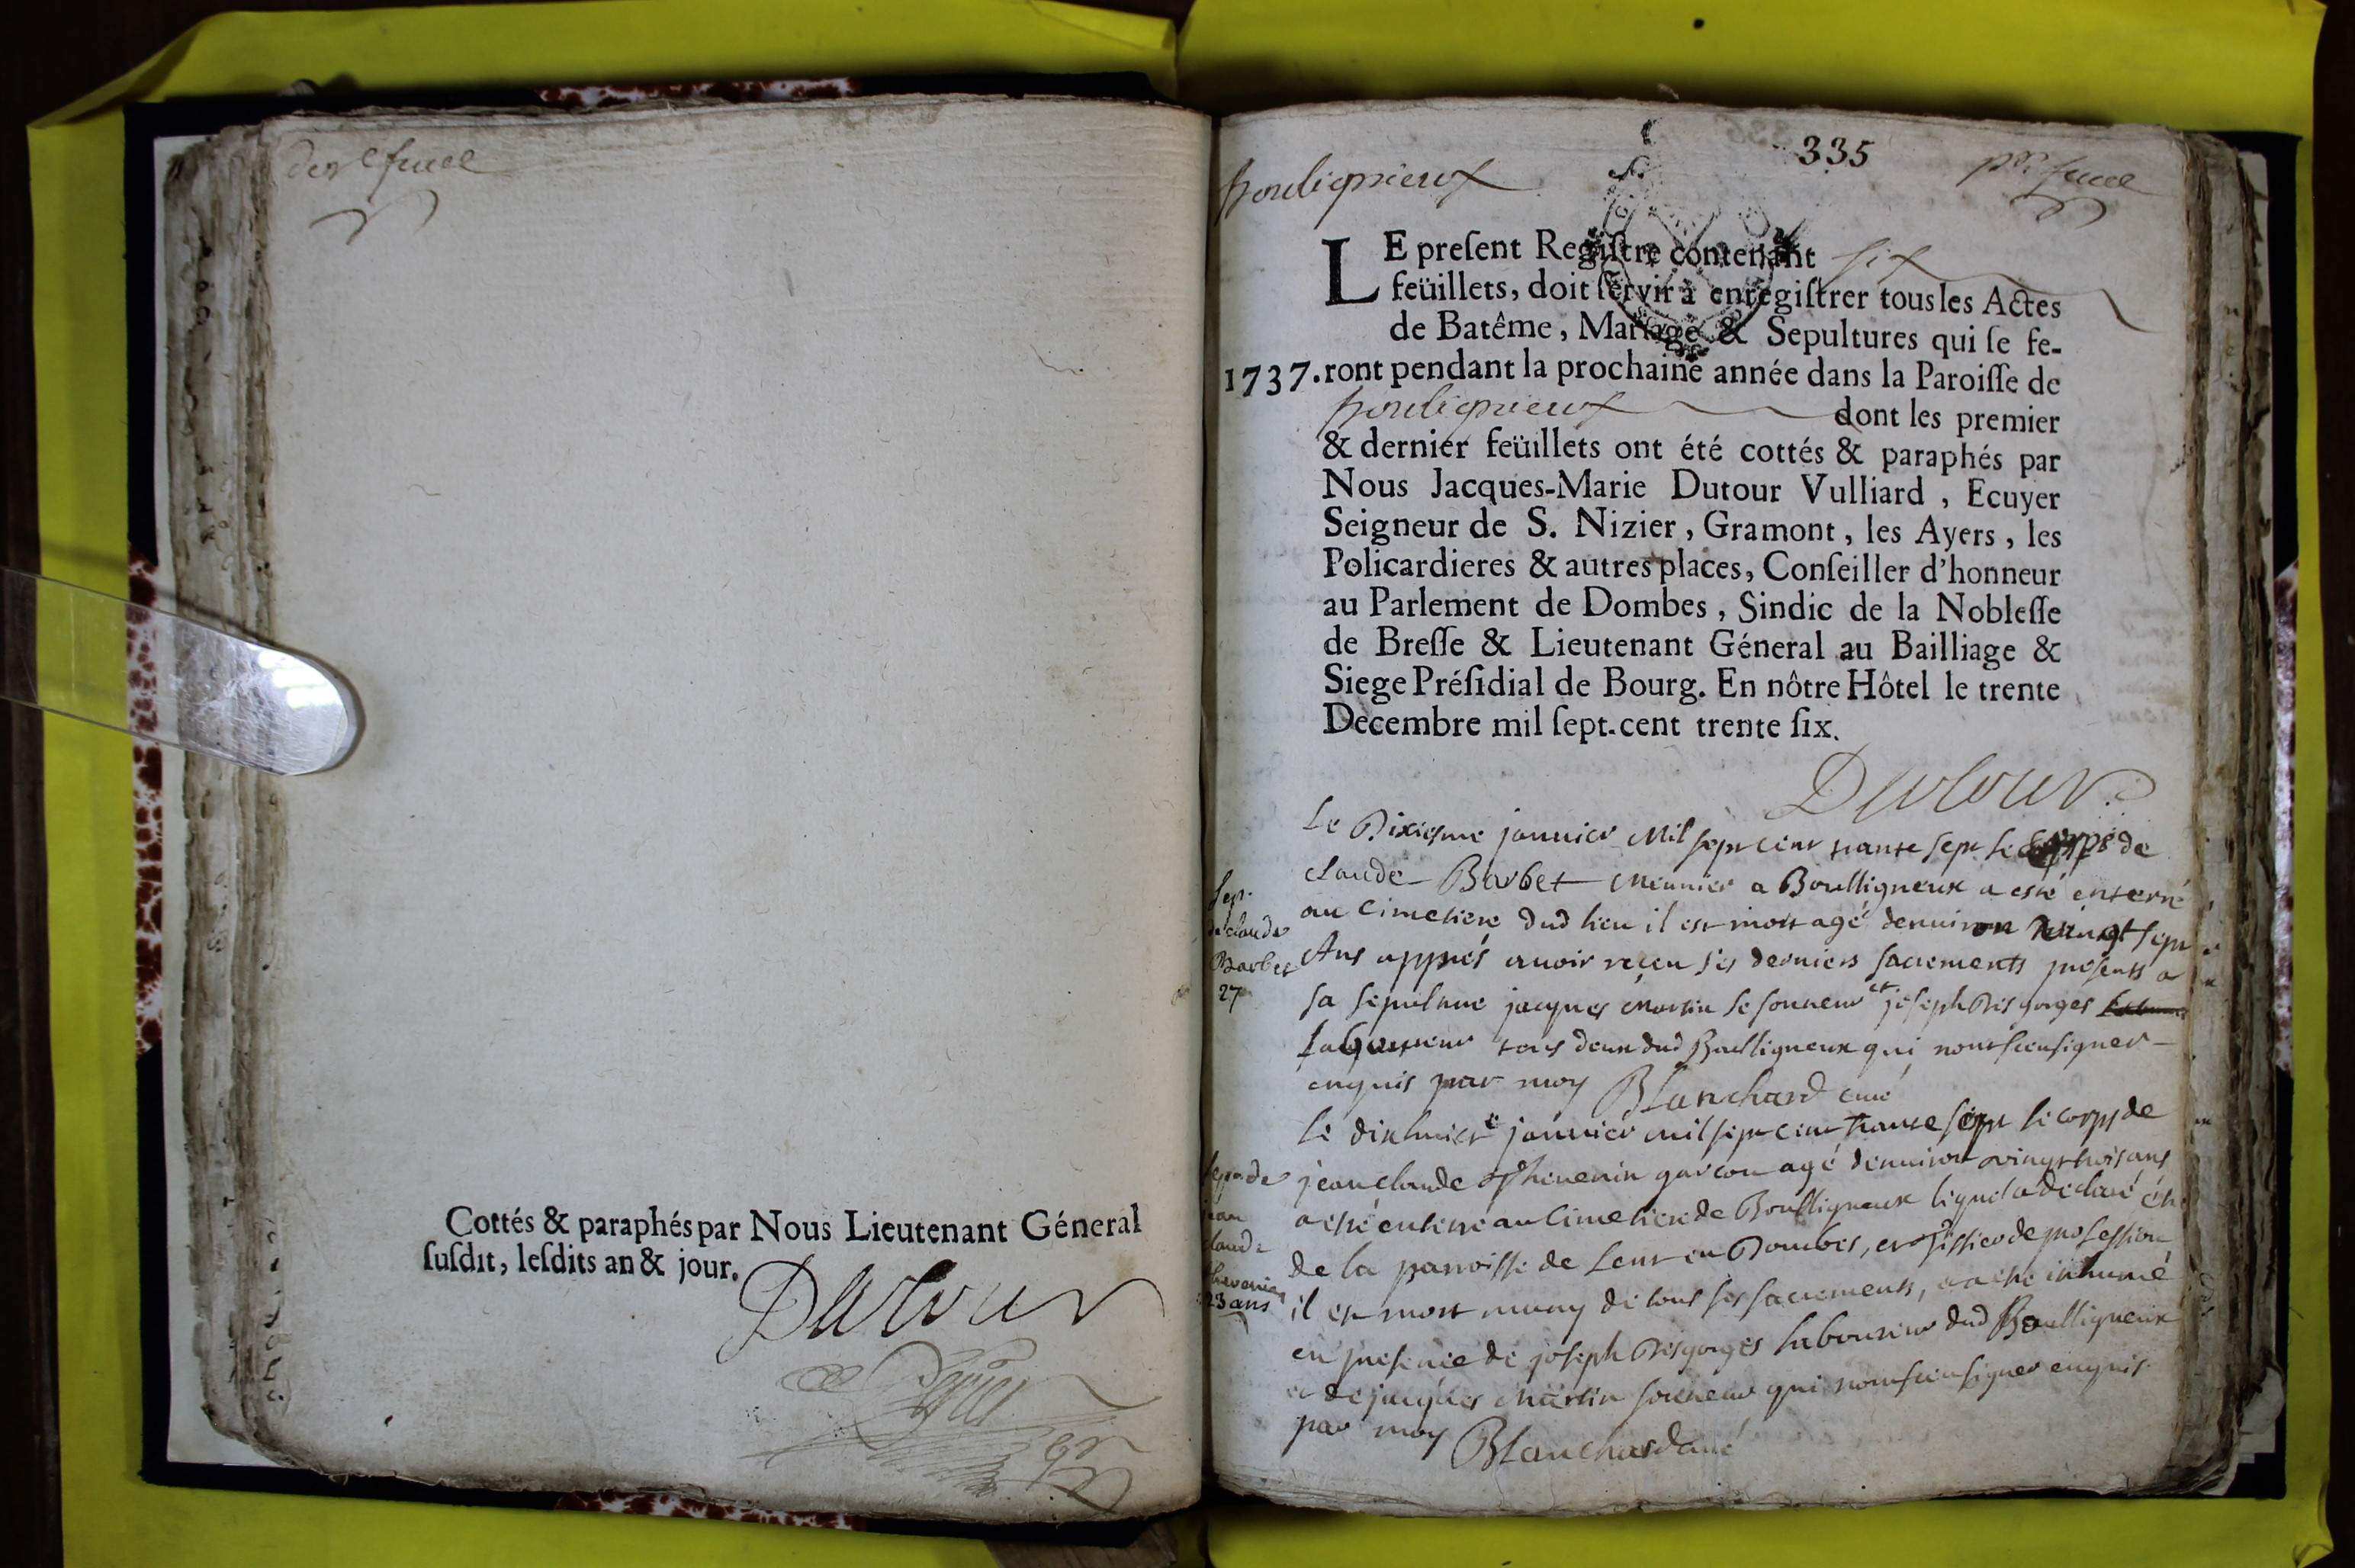 der feuil
Cottés & paraphés par Nous Lieutenant Géneral
ſuſdit, leſdits an & jour.
Dutour
335
Bouligneux
pr feuil
LE preſent Regiſtre contenant six
feüillets, doit ſervir à enregiſtrer tous les Actes
de Batême, Mariage & Sepultures qui ſe fe-
1737. ront pendant la prochaine année dans la Paroiſſe de
Bouligneux dont les premier
& dernier feüillets ont été cottés & paraphés par
Nous Jacques-Marie Dutour Vulliard, Ecuyer
Seigneur de S. Nizier, Gramont, les Ayers, les
Policardieres & autres places, Conſeiller d'honneur
au Parlement de Dombes, Sindic de la Nobleſſe
de Breſſe & Lieutenant Géneral au Bailliage &
Siege Préſidial de Bourg. En nôtre Hôtel le trente
Decembre mil ſept-cent trente ſix.
Dutour
Le Dixiesme janvier Mil sept cent trante sept le corps de
Claude Barbet Meunier a Boulligneux a esté enterré
au Cimetiere dud lieu il est mort agé denuiron vingt sept
Ans appres auoir reçeu ses derniers sacrements presents a
sa sepulture jacques Martin le sonneur et joseph Desgorges
laboureur tous deux dud Boulligneux qui nont sceu signer
enquis par moy Blanchard curé
Sep.
de claude
Barbet
27
Le dixhuict e janvier mil sept cent trante sept le corps de
jean claude Thevenin garcon agé denuiron vingt trois ans
a esté enterré au Cimetiere de Boulligneux lequel a declaré
de la parroisse de Lent en Dombes, et Tissier de profession
il est mort muny de tous ses sacrements, a esté inhumé
en presence de joseph Desgorges laboureur dud Boulligneux
et de jacques Martin sonneur qui nont sceu signer enquis
par moy Blanchard curé
sep. de
jean
claude
thevenin
23 ans